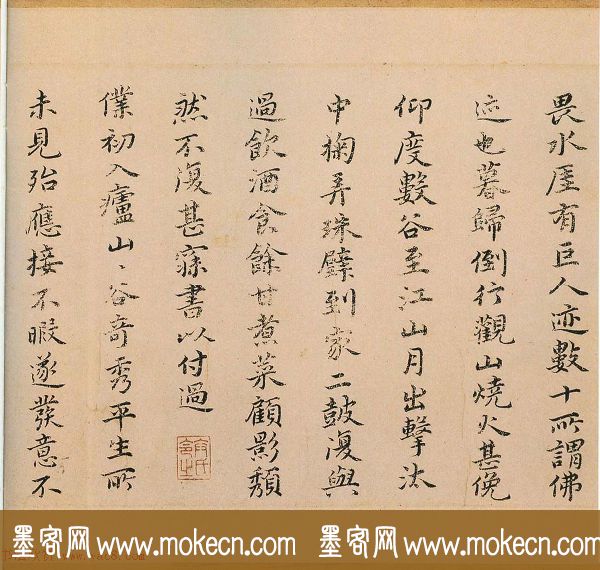 畏水厓有巨人迹數十所謂佛
迹也暮歸倒行觀山燒火甚俛
仰度數谷至江山月出擊汰
中掬弄珠璧到家二鼓復與
過飲酒食餘甘煮菜顧影頹
然不復甚寐書以付過
僕初入廬山、谷奇秀平生所
未見殆應接不暇遂發意不
墨客网 www.mokecn.com 墨客网 www.mokecn.com